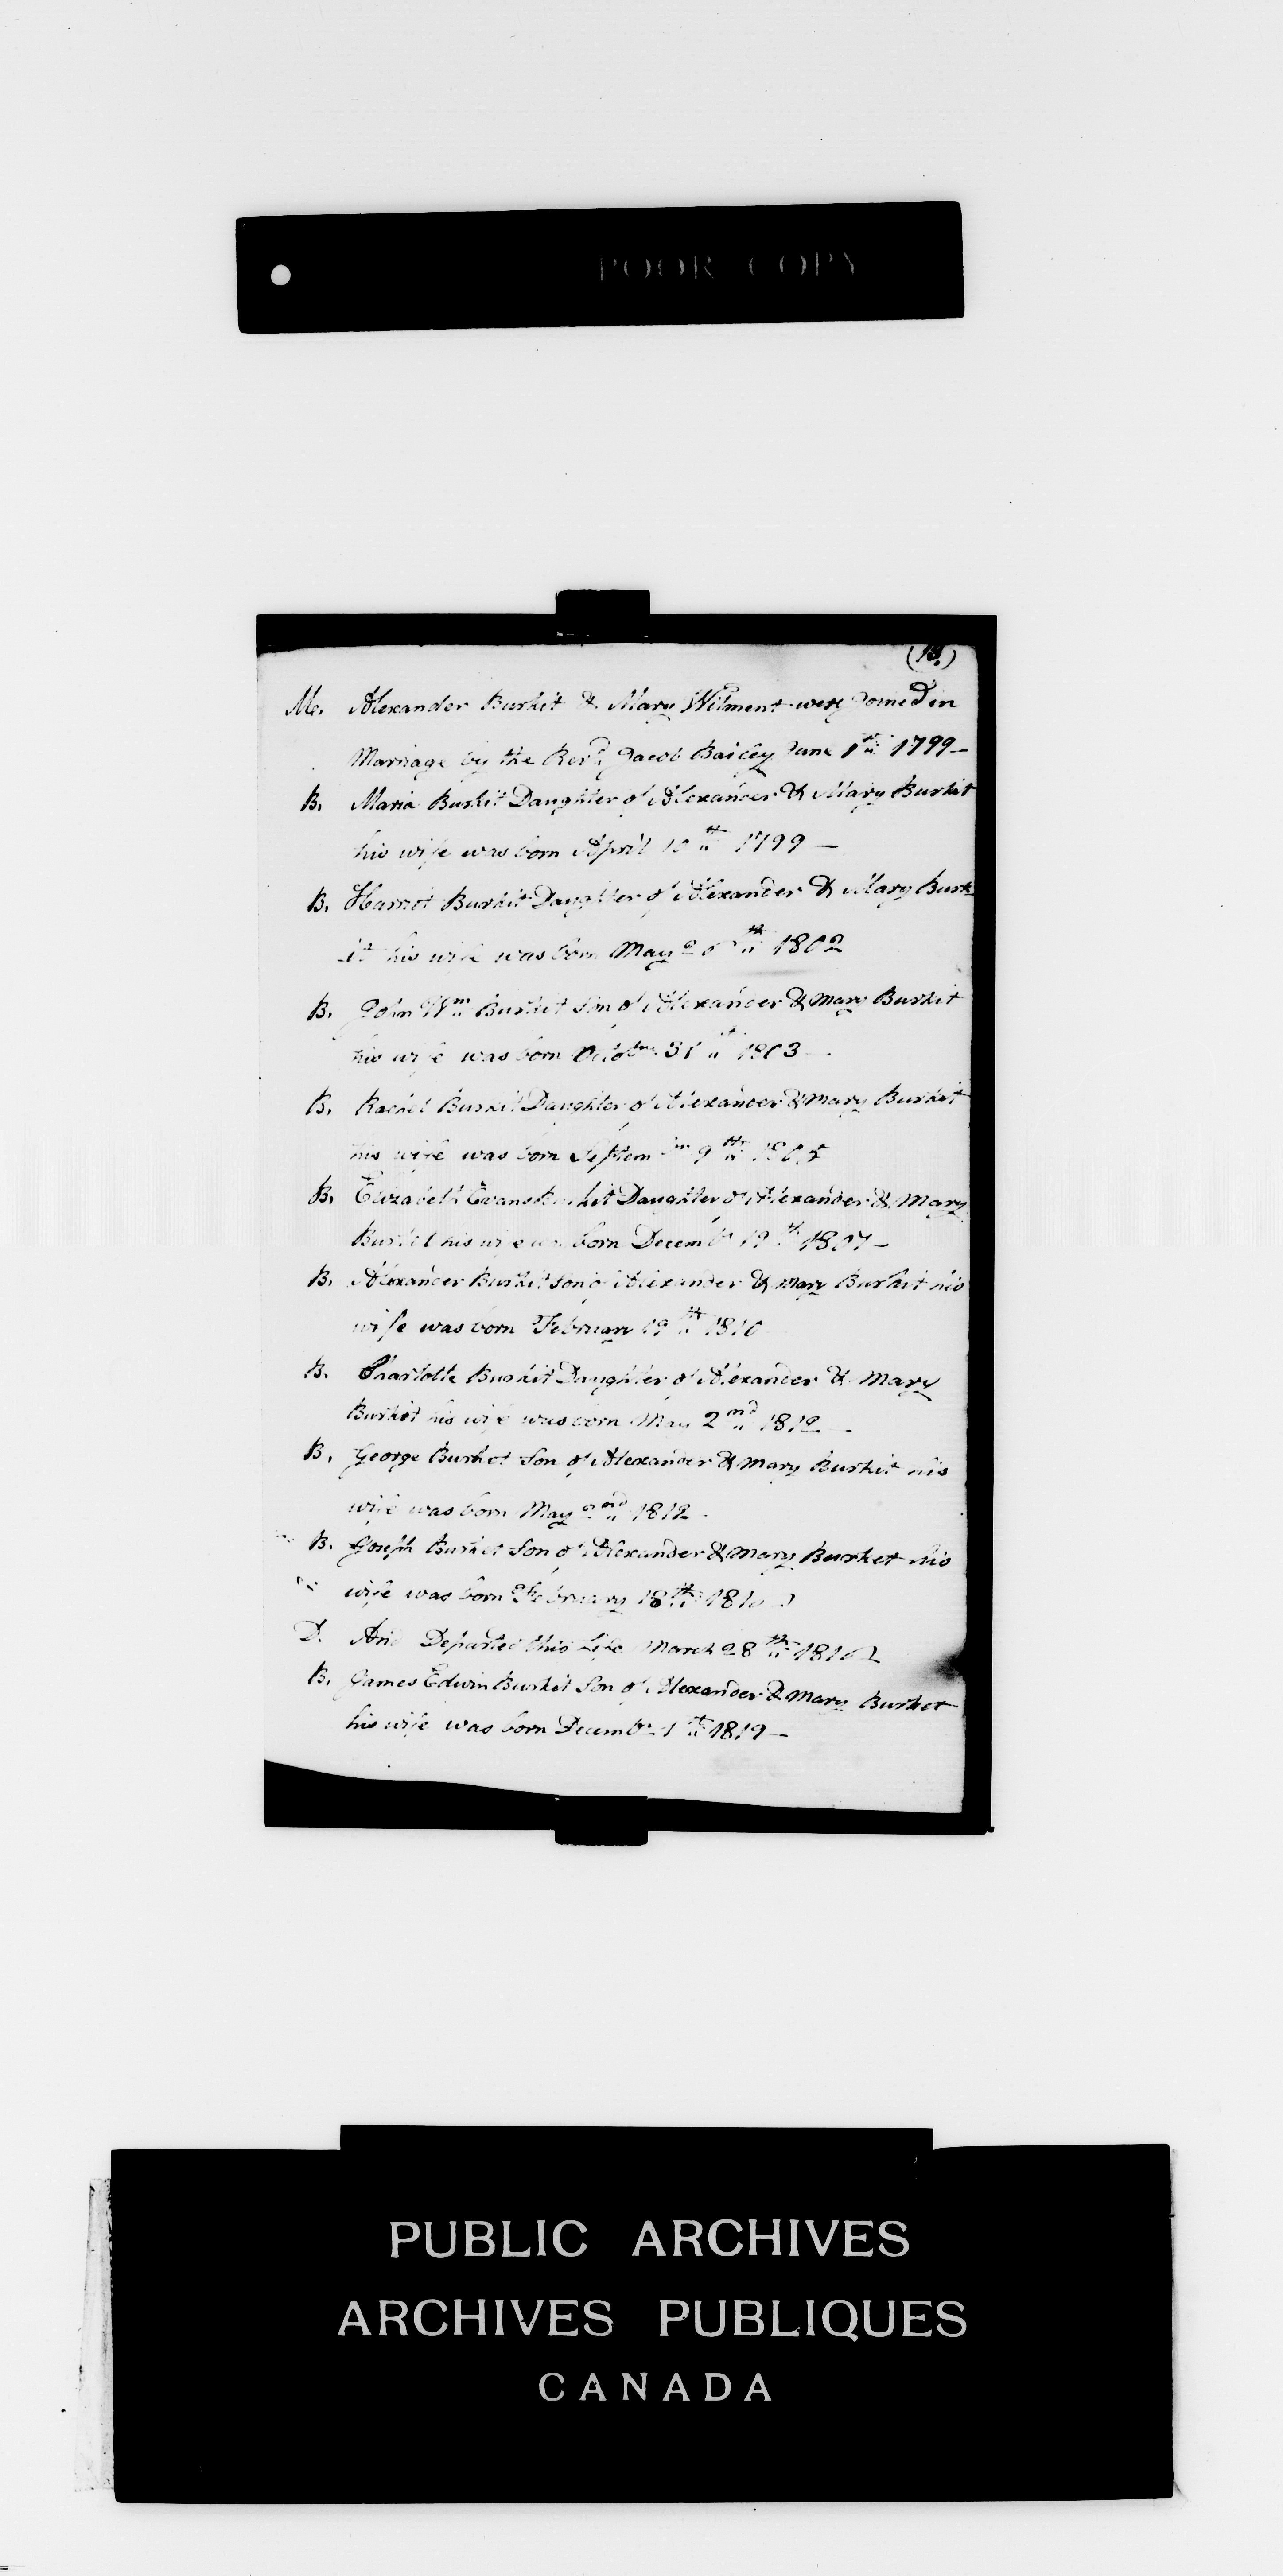 POOR COPY
(13.)
M. Alexander Burkit & Mary Wilment were Joined in
Marriage by the Revd Jacob Bailey June 1th 1799—
B. Maria Burkit Daughter of Alexander & Mary Burkit
his wife was born April 10th 1799—
B. Harriot Burkit Daughter of Alexander & Mary Burk-
-it his wife was born May th 1802
B. John Wm Burkit Son of Alexander & Mary Burkit
his wife was born October 31 1803—
B. Rachel Burkit Daughter of Alexander & Mary Burkit
his wife was born Septem 9th 1805
B. Elizabeth Evans Daughter of Alexander & Mary
Burkit his wife was born Decembr 19th 1807—
B. Alexander Burkit Son of Alexander & Mary Burkit his
wife was born February 19th 1810
B. Charlotte Burkit Daughter of Alexander & Mary
Burket his wife was born May 2nd 1812—
B. George Burket Son of Alexander & Mary Burkit his
wife was born May 2nd 1812
B. Joseph Burket Son of Alexander & Mary Burket his
wife was born February 18th
D. And Departed this Life March 28th
B. James Edwin Burket Son of Alexander & Mary Burket
his wife was born Decembr 1th 1819—
PUBLIC ARCHIVES
ARCHIVES PUBLIQUES
CANADA